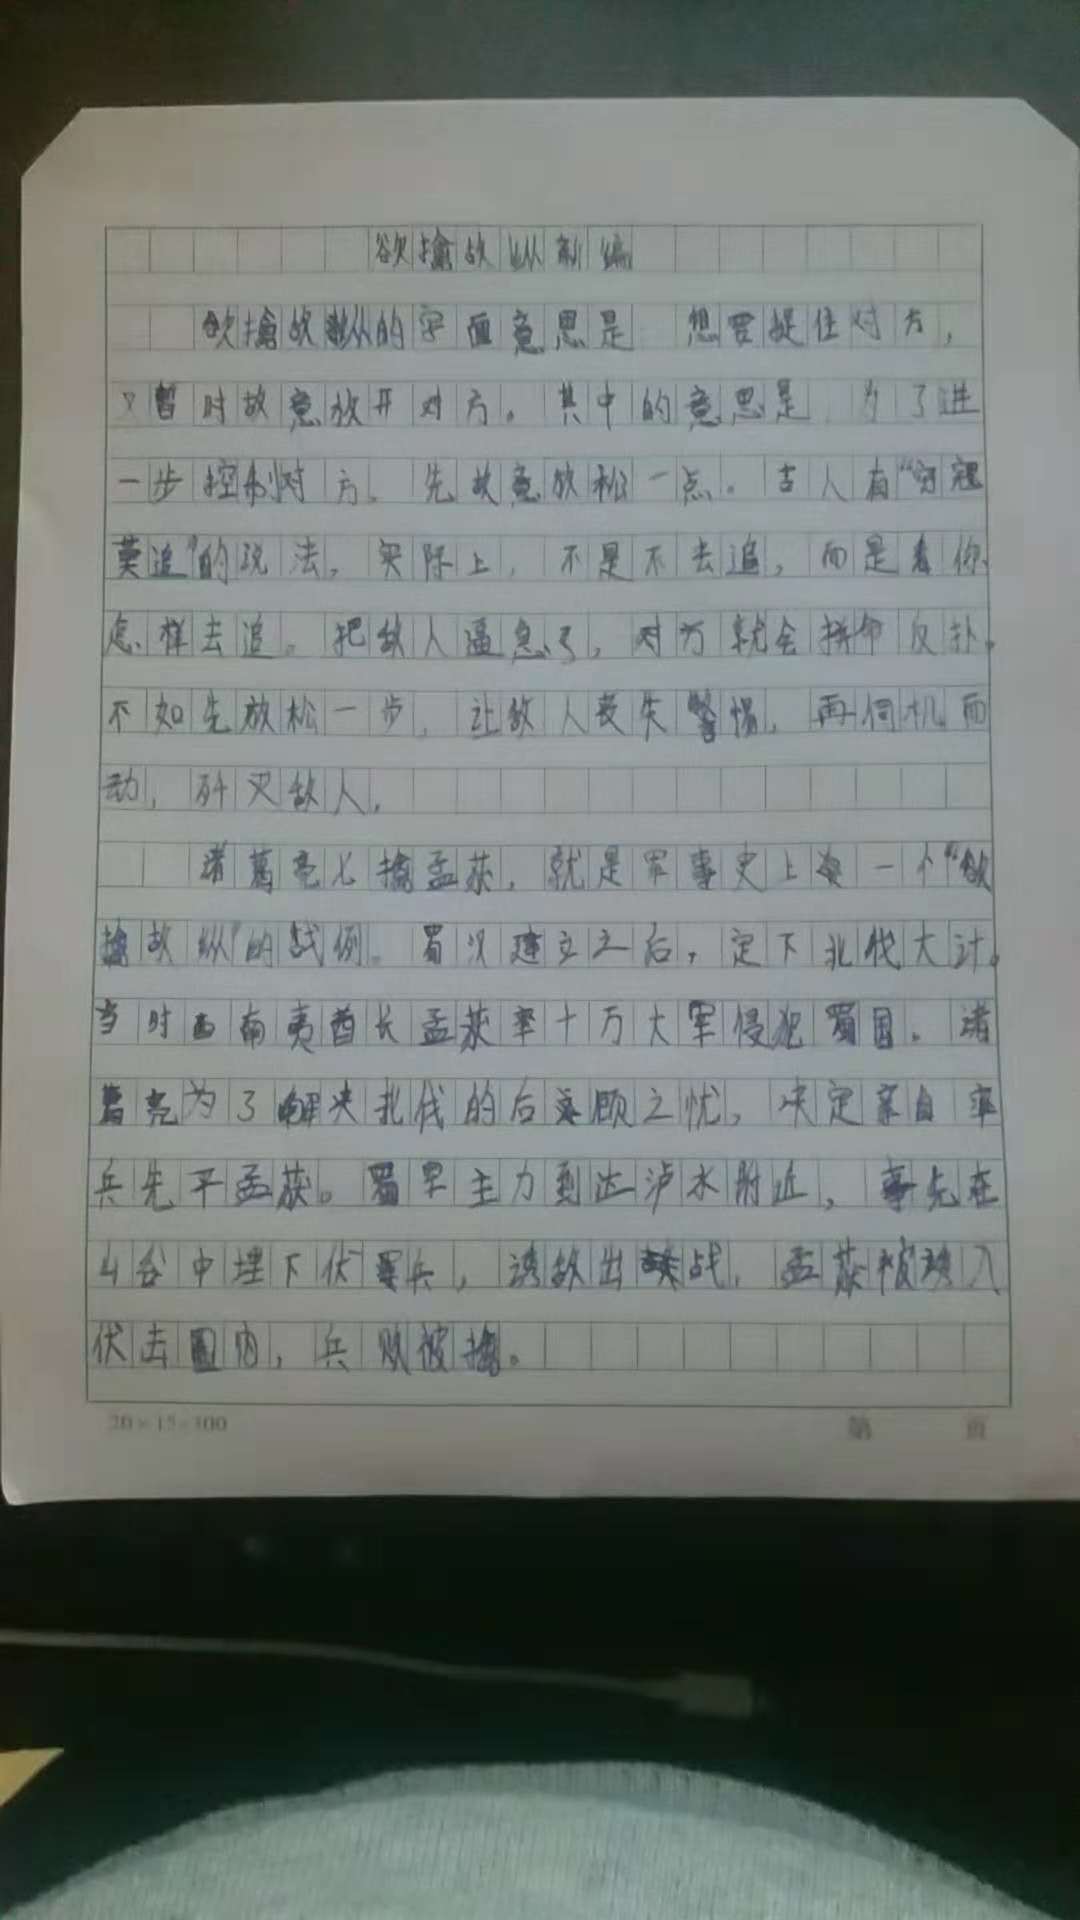 欲擒故纵新编
欲擒故纵的字面意思是 想要捉住对方,
又暂时故意放开对方。其中的意思是,为了进
一步控制对方,先故意放松一点。古人有“穷寇
莫追”的说法,实际上,不是不去追,而是看你
怎样去追。把敌人逼急了,对方就会拼命反扑。
不如先放松一步,让敌人丧失警惕,再伺机而
动,歼灭敌人。
诸葛亮七擒孟获,就是军事史上 一个“欲
擒故纵”的战例。蜀汉建立之后,定下北伐大计。
当时西南夷酋长孟获率十万大军侵犯蜀国。诸
葛亮为了解决北伐的后顾之忧,决定亲自率
兵先平孟获。蜀军主力到达泸水附近,事先在
山谷中埋下伏兵,诱敌出战,孟获被诱入
伏击圈内,兵败被擒。
20×15=300
第 页